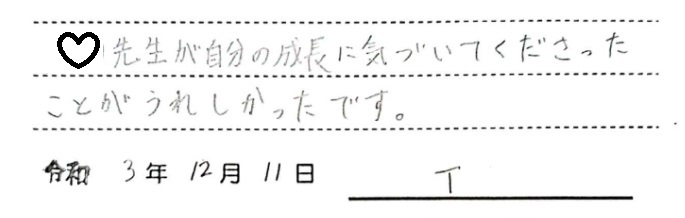 ♡先生が自分の成長に気づいてくださった
ことがうれしかったです。
令和 3年 12月 11日 T